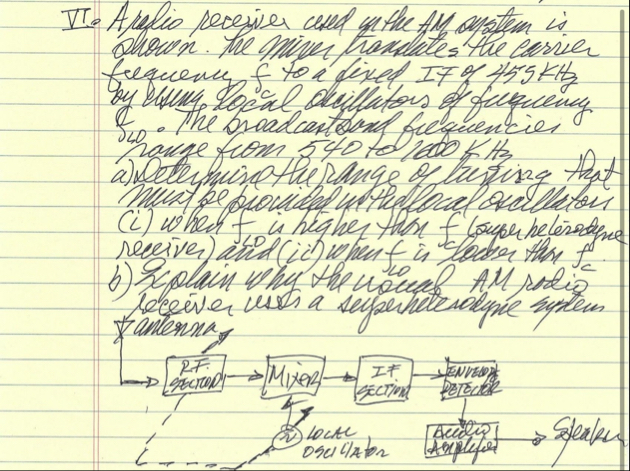 VI. A radio receiver used in the AM system is
shown. The mixer translates the carrier
frequency fc to a fixed IF of 455 KHz
by using local oscillators of frequency
fLO. The broadcast band frequencies
range from 540 to 1600 KHz
a) Determine the range of tuning that
must be provided in the local oscillators
(i) when fLO is higher than fc (superheterodyne
receiver) and (ii) when fLO is lower than fc.
b) Explain why the usual AM radio
receiver uses a superheterodyne system
antenna
R.F. SECTION
MIXER
IF SECTION
ENVELOPE DETECTOR
LOCAL OSCILLATOR
Audio Amplifier
Speaker